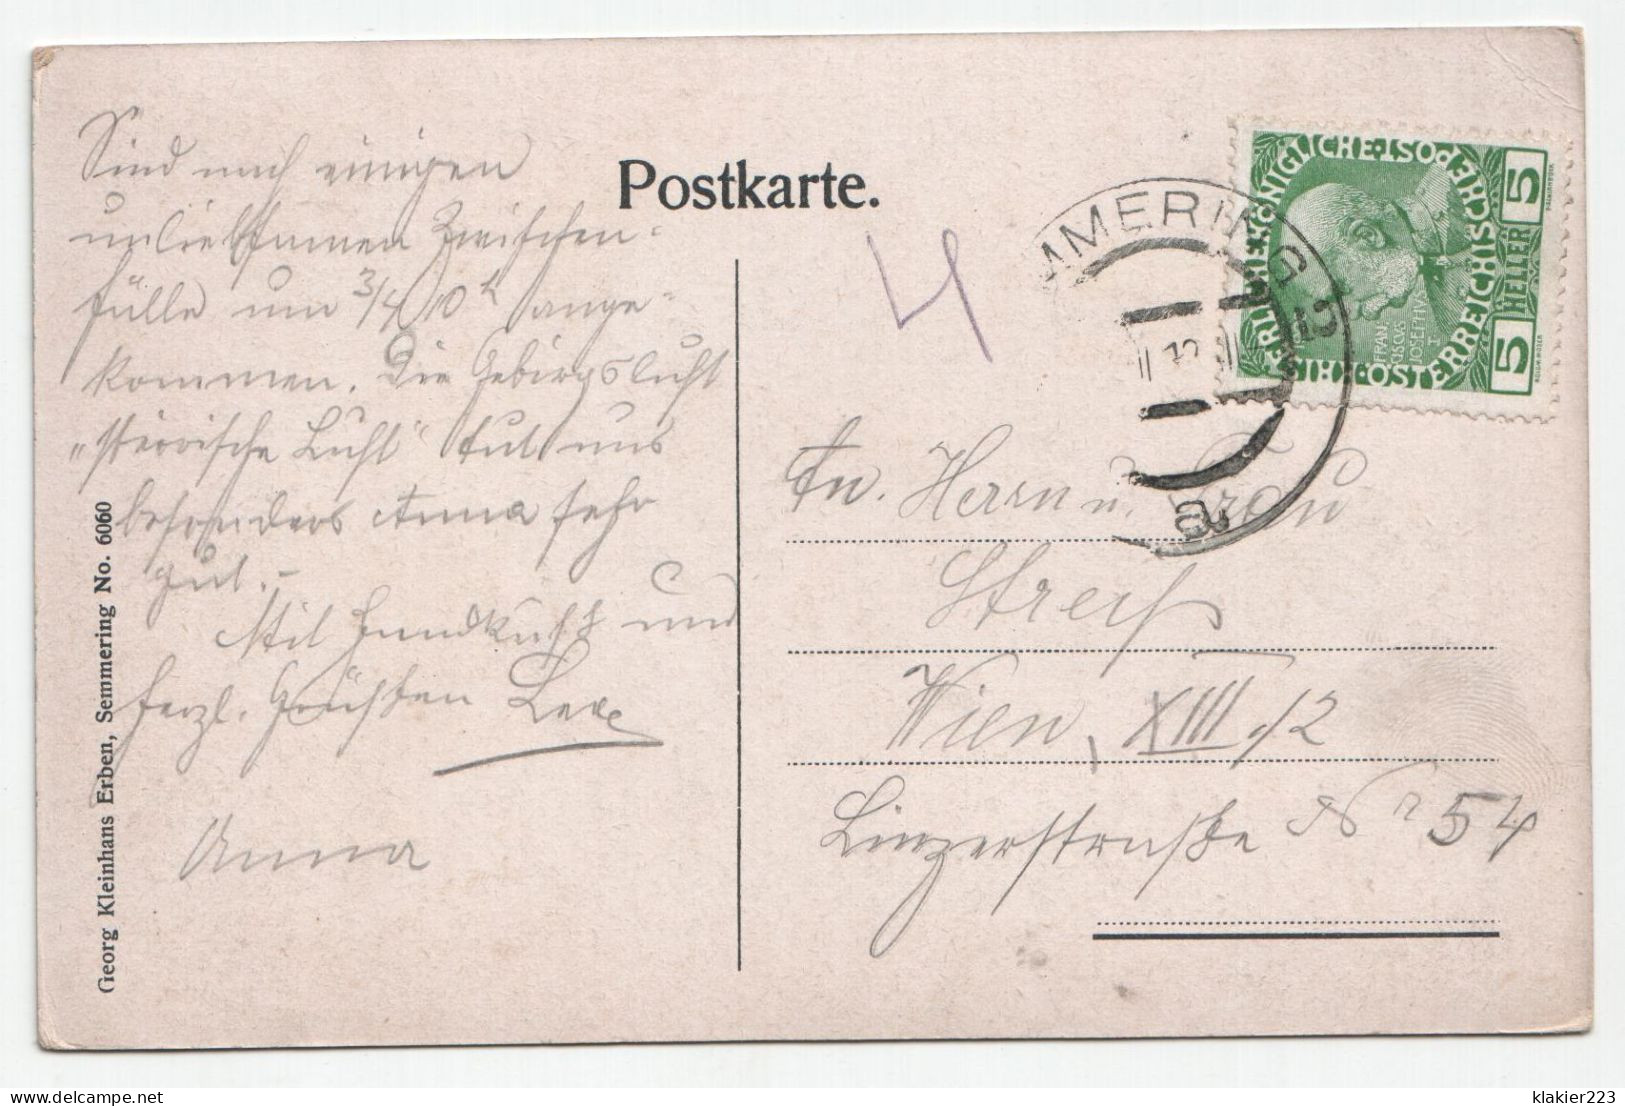 Postkarte.
Sind nach einigen
unliebsamen Zwischen-
fälle um 3/4 10 h ange-
kommen. Die Gebirgsluft
"steirische Luft" tut uns
besonders Anna sehr
gut. -
Mit Handkuß und
herzl. Grüßen
Anna
Georg Kleinhans Erben, Semmering No. 6060
4
MMERING
KAISERLICHE KÖNIGLICHE ÖSTERREICHISCHE POST
5 HELLER 5
FRAN
CISCUS
JOSEPHVS
I
An. Herrn u. Frau
Wien, XIII./2
Linzerstraße Nr 54
klakier223